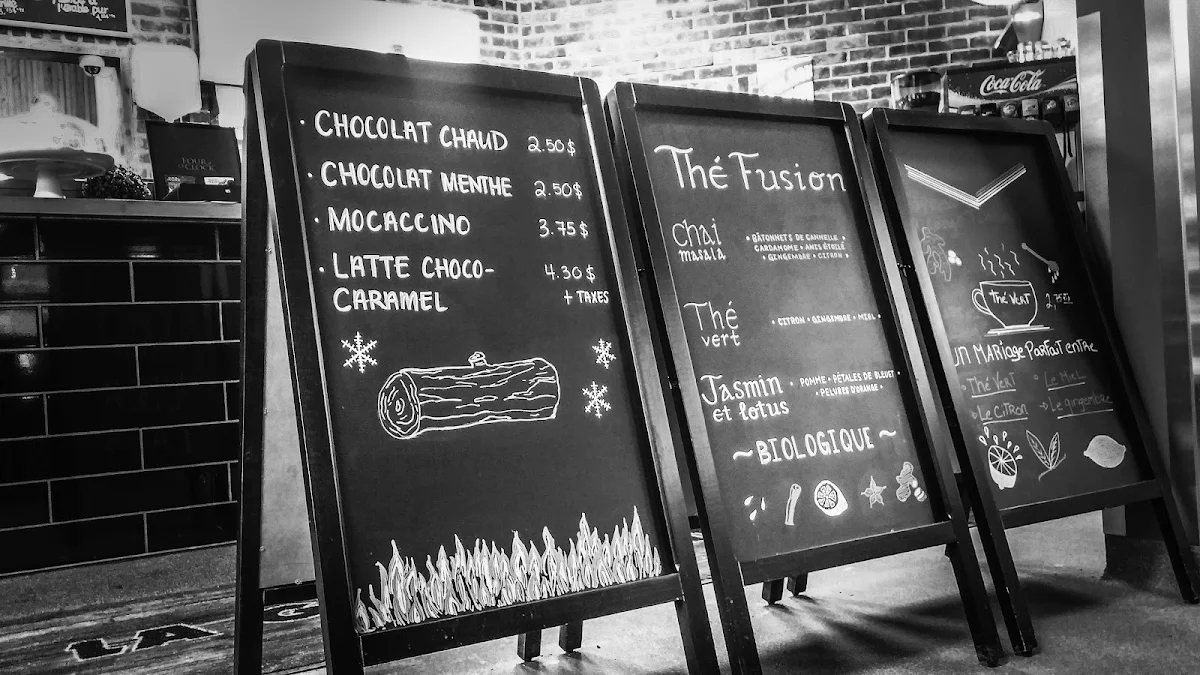 • CHOCOLAT CHAUD 2.50$
• CHOCOLAT MENTHE 2.50$
• MOCACCINO 3.75$
• LATTE CHOCO- 4.30$
CARAMEL + TAXES
Thé Fusion
chai
masala
• BÂTONNETS DE CANNELLE •
CARDAMOME • ANIS ÉTOILÉ
• GINGEMBRE • CITRON •
Thé
vert
• CITRON • GINGEMBRE • MIEL •
Jasmin
et lotus
• POMME • PÉTALES DE BLEUET •
• PELVRES D'ORANGE •
~ BIOLOGIQUE ~
Thé VERT
UN MARiage PaRfait entre
Thé VERT
Le Miel
Le CiTRon
Le gingembre
Coca-Cola
FOUR
O'CLOCK
LA